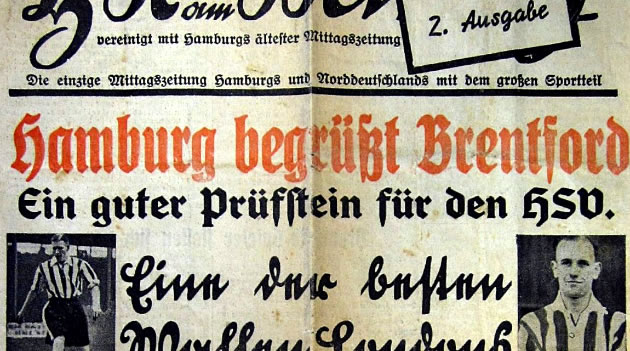 am
2. Ausgabe
vereinigt mit Hamburgs ältester Mittagszeitung
Die einzige Mittagszeitung Hamburgs und Norddeutschlands mit dem großen Sportteil
Hamburg begrüßt Brentford
Ein guter Prüfstein für den HSV.
Eine der besten
Londons